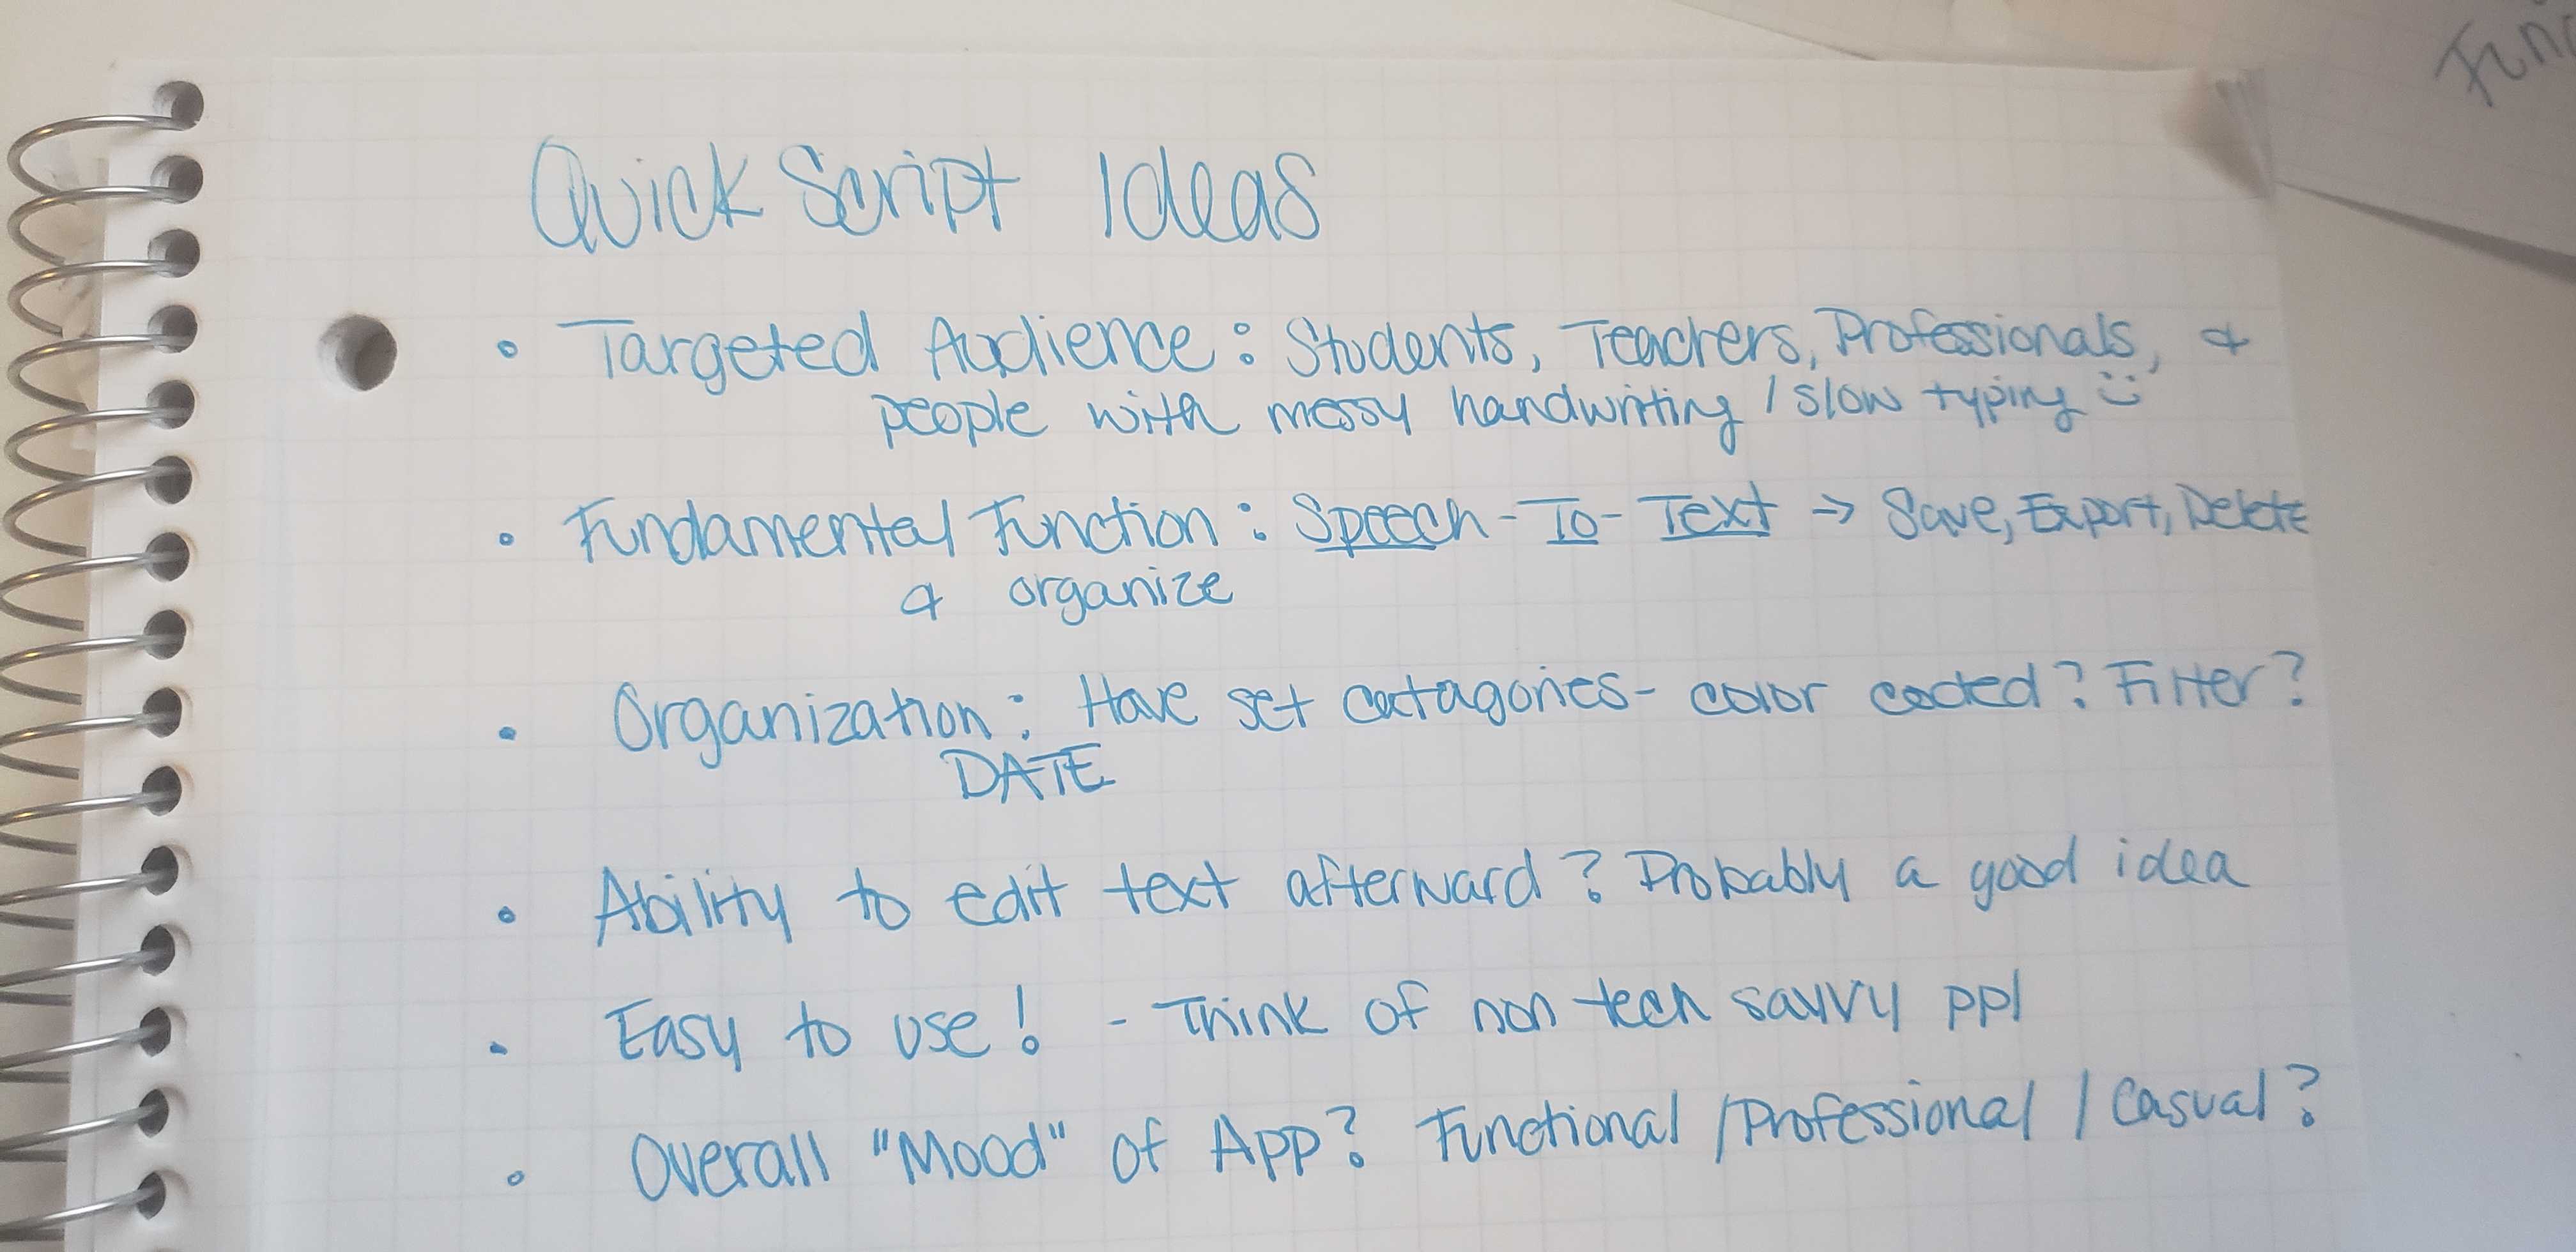 Quick Script Ideas
• Targeted Audience: Students, Teachers, Professionals, &
people with messy handwriting / slow typing :)
• Fundamental Function: Speech-To-Text → Save, Export, Delete
& organize
• Organization: Have set catagories - color coded? Filter?
DATE
• Ability to edit text afterward? Probably a good idea
• Easy to use! - Think of non tech savvy ppl
• Overall "Mood" of App? Functional / Professional / Casual?